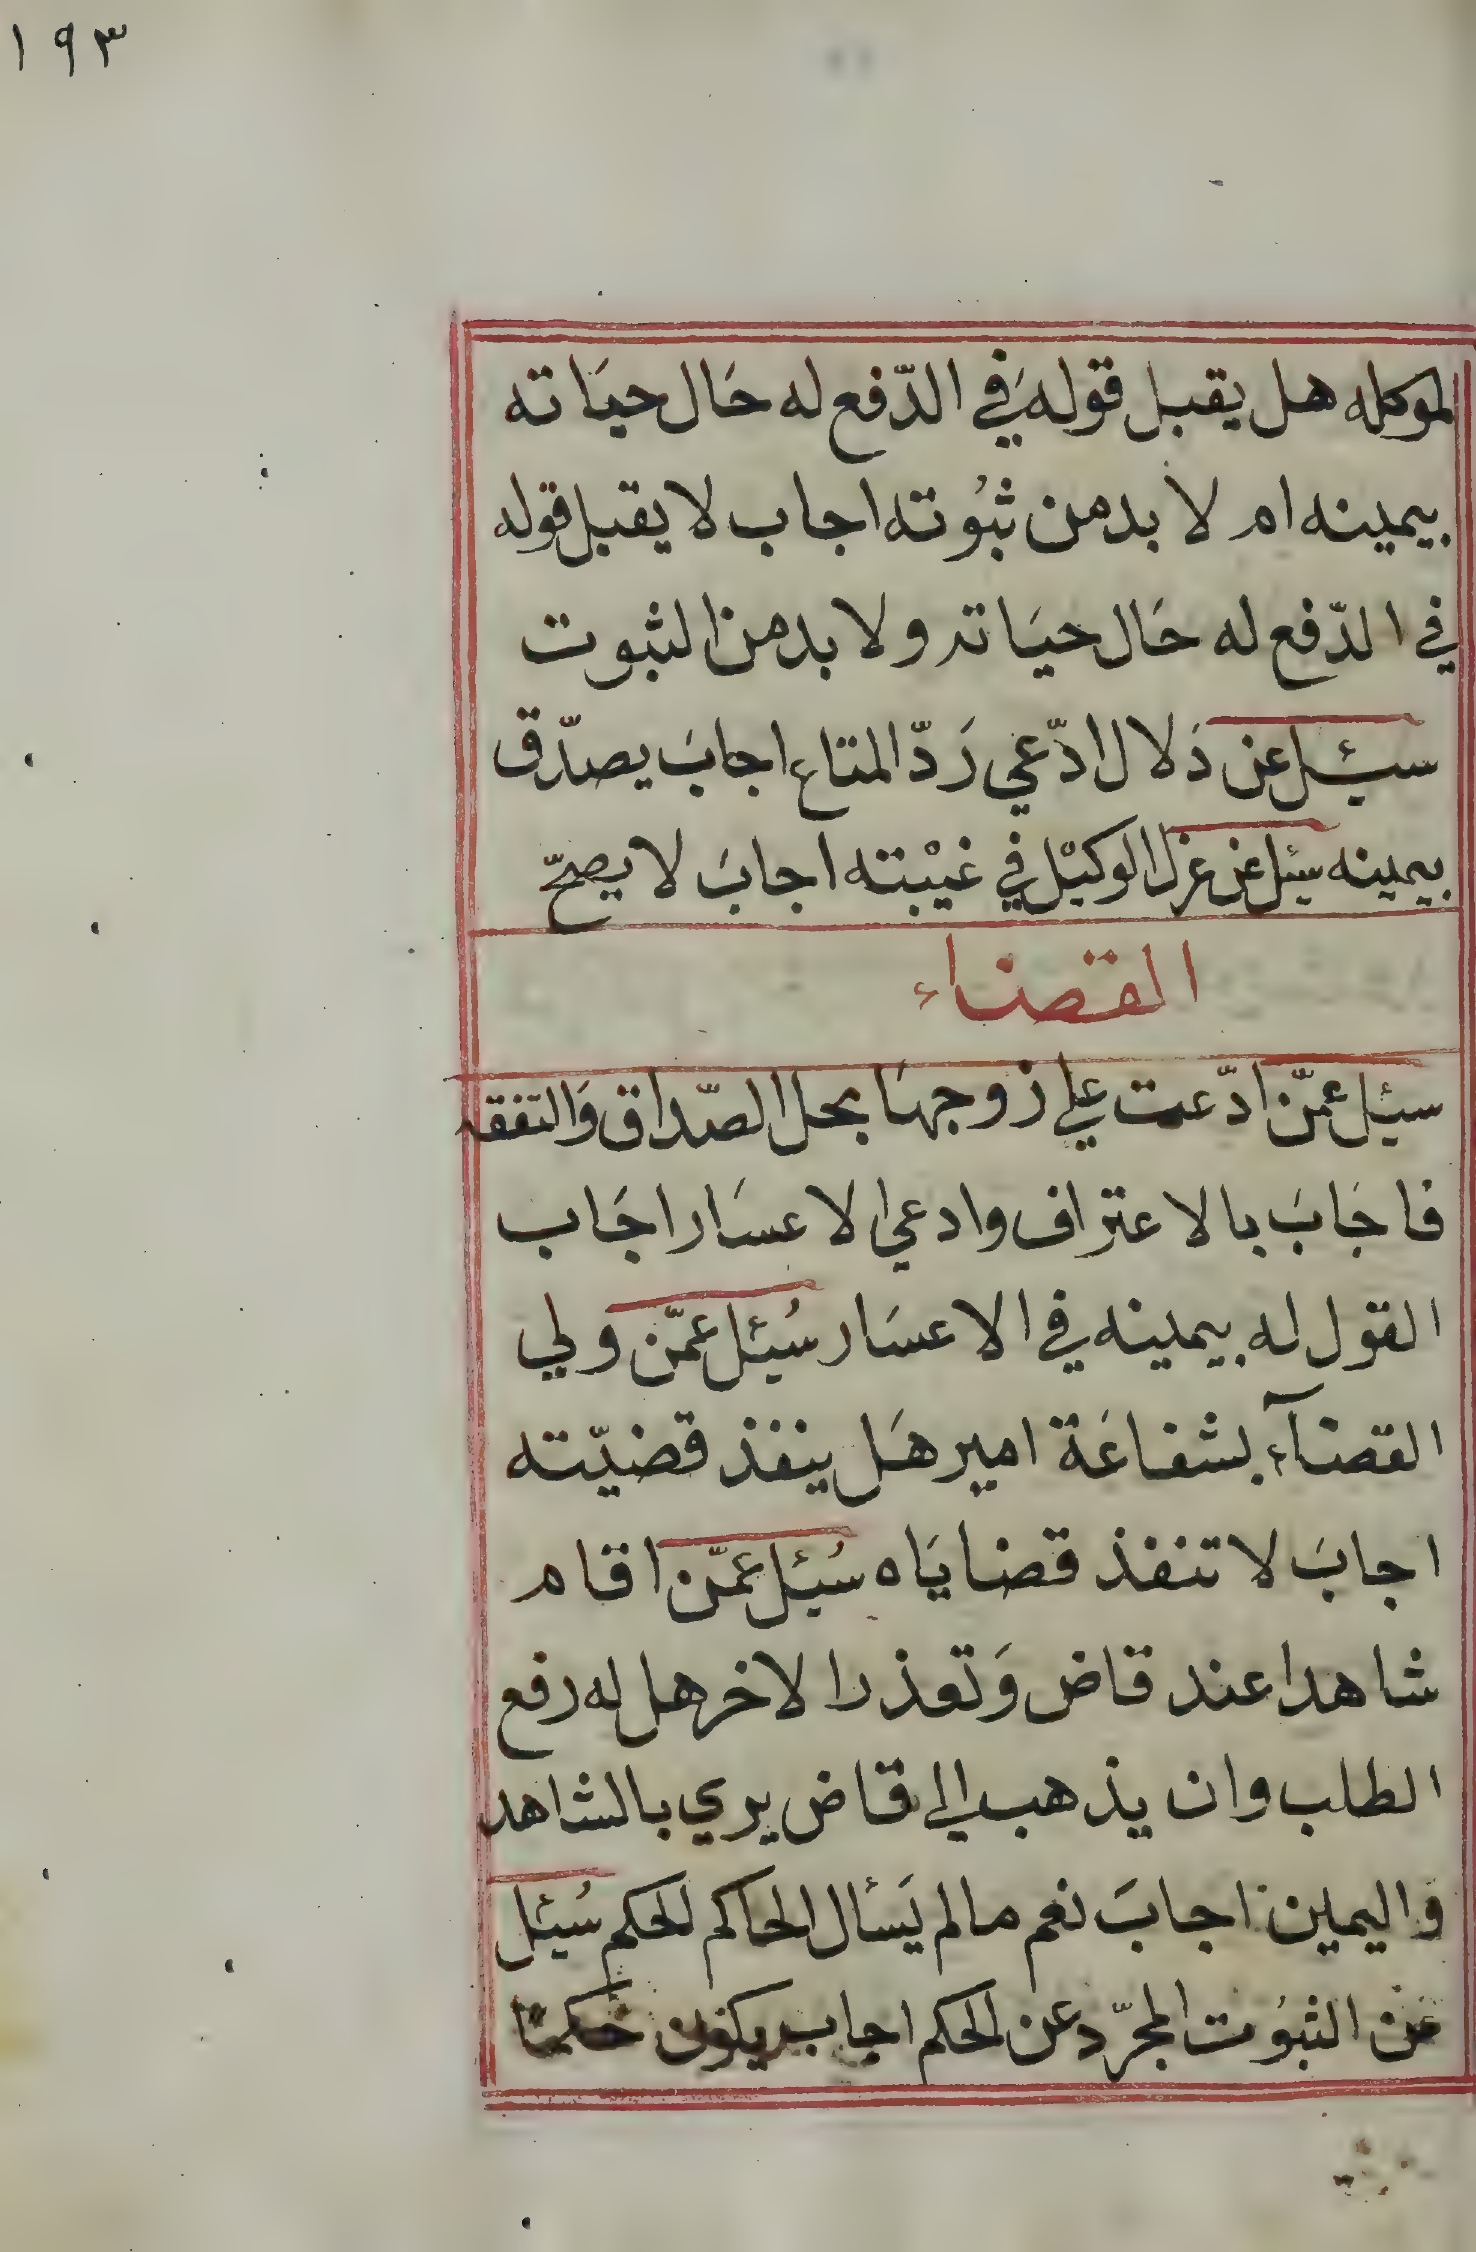 ١٩٣
لموكله هل يقبل قوله في الدّفع له حَال حيَاته
بيمينه ام لا بد من ثبُوته اجاب لا يقبل قوله
في الدّفع له حَال حيَاته ولا بد من الثبوت
سئل عن دَلال ادّعي رَدّ المتاع اجابَ يصدّق
بيمينه سئل عن عزل الوكيْل في غيْبته اجابَ لا يصحّ
القضاء
سئل عمّن ادّعت علي زوجهَا بحل الصّداق وَالنفقه
فاجَابَ بالاعتراف وادعي الاعسَار اجَاب
القول له بيمينه في الاعسَار سُئل عمّن ولي
القضآء بشفاعَة امير هَل ينفذ قضيّته
اجابَ لا تنفذ قضايَاه سُئل عمّن اقام
شاهدا عند قاض وَتعذر الاخر هل له رفع
الطلب وان يذهب الي قاض يري بالشاهد
واليمين اجابَ نعم ما لم يَسأل الحاكم الحكم سُئل
عَن الثبُوت المجرّد عن الحكم اجاب يكون حكمًا